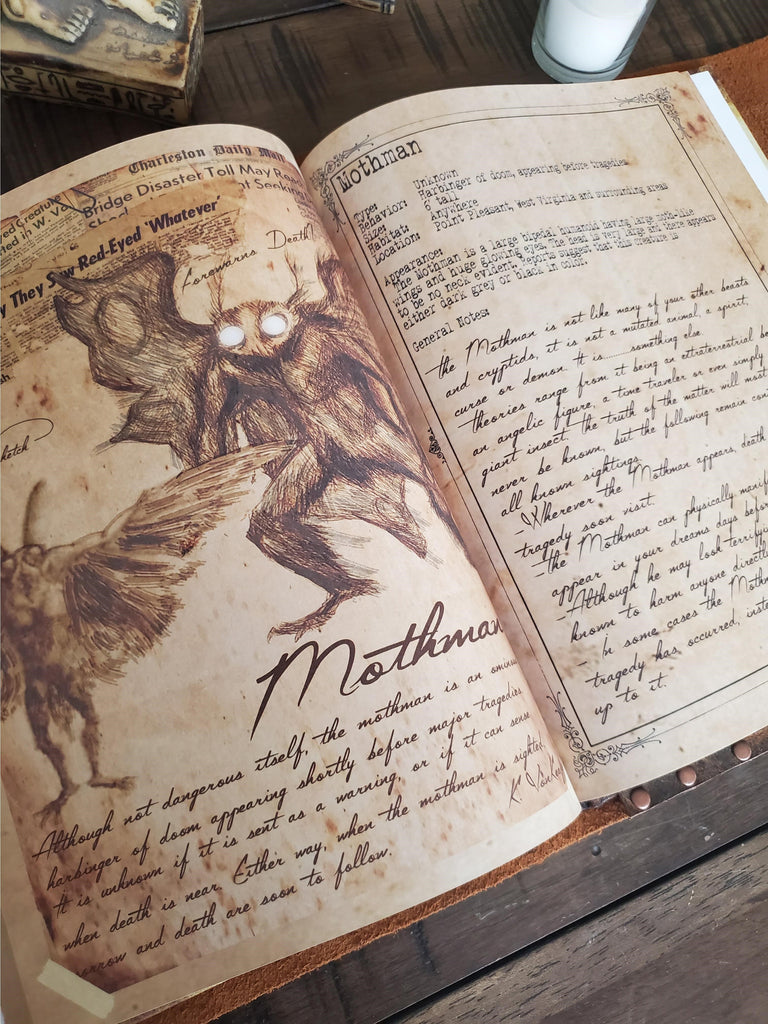 Charleston Daily Mail
Bridge Disaster Toll May Reach
Seeking
They Saw Red-Eyed 'Whatever'
Forewarns Death!
sketch
Mothman
Although not dangerous itself, the mothman is an
harbinger of doom appearing shortly before major tragedies.
It is unknown if it is sent as a warning, or if it can sense
when death is near. Either way, when the mothman is sighted,
sorrow and death are soon to follow.
K.
Mothman
Type: Unknown
Behavior: Harbinger of doom, appearing before tragedies
Size: 6 tall
Habitat: Anywhere
Location: Point Pleasant, West Virginia and surrounding areas
Appearance:
The Mothman is a large bipedal humanoid having large moth-like
wings and huge glowing eyes. The head is very large and there appears
to be no neck evident. Reports suggest that this creature is
either dark grey or black in color.
General Notes:
the Mothman is not like many of your other beasts
and cryptids, it is not a mutated animal, a spirit,
curse or demon. It is.........something else.
theories range from it being an extraterrestrial
an angelic figure, a time traveler or even simply
giant insect. the truth of the matter will most
never be known, but the following remain
all known sightings.
-Wherever the Mothman appears, death
tragedy soon visit.
-the Mothman can physically
appear in your dreams days
-Although he may look
known to harm anyone
- In some cases the
tragedy has occurred,
up to it.